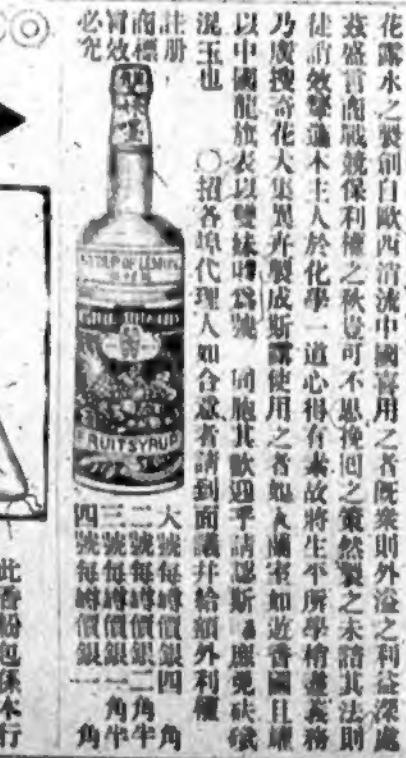 花露水之製創自歐西消流中國喜用之者既衆則外溢之利益深處
茲盛言商戰競保利權之秋豈可不思挽囘之策然製之未諳其法則
徒誚效顰蓮本主人於化學一道心得有素故將生平所學稍盡義務
乃廣搜奇花大集異卉製成斯露使用之者如入蘭室如遊香國且
以中國龍旗表以雙妹嚜爲號 同胞其歡迎乎請認斯嚜庶免砆碔
混玉也 〇招各埠代理人如合意者請到面議幷給額外利權
註册
商標
冒效
必究
雙妹嚜
SYRUP OF LEMON
FRUIT SYRUP
大號每罇價銀四角
二號每罇價銀二角半
三號每罇價銀一角半
四號每罇價銀一角
此香粉包係本行